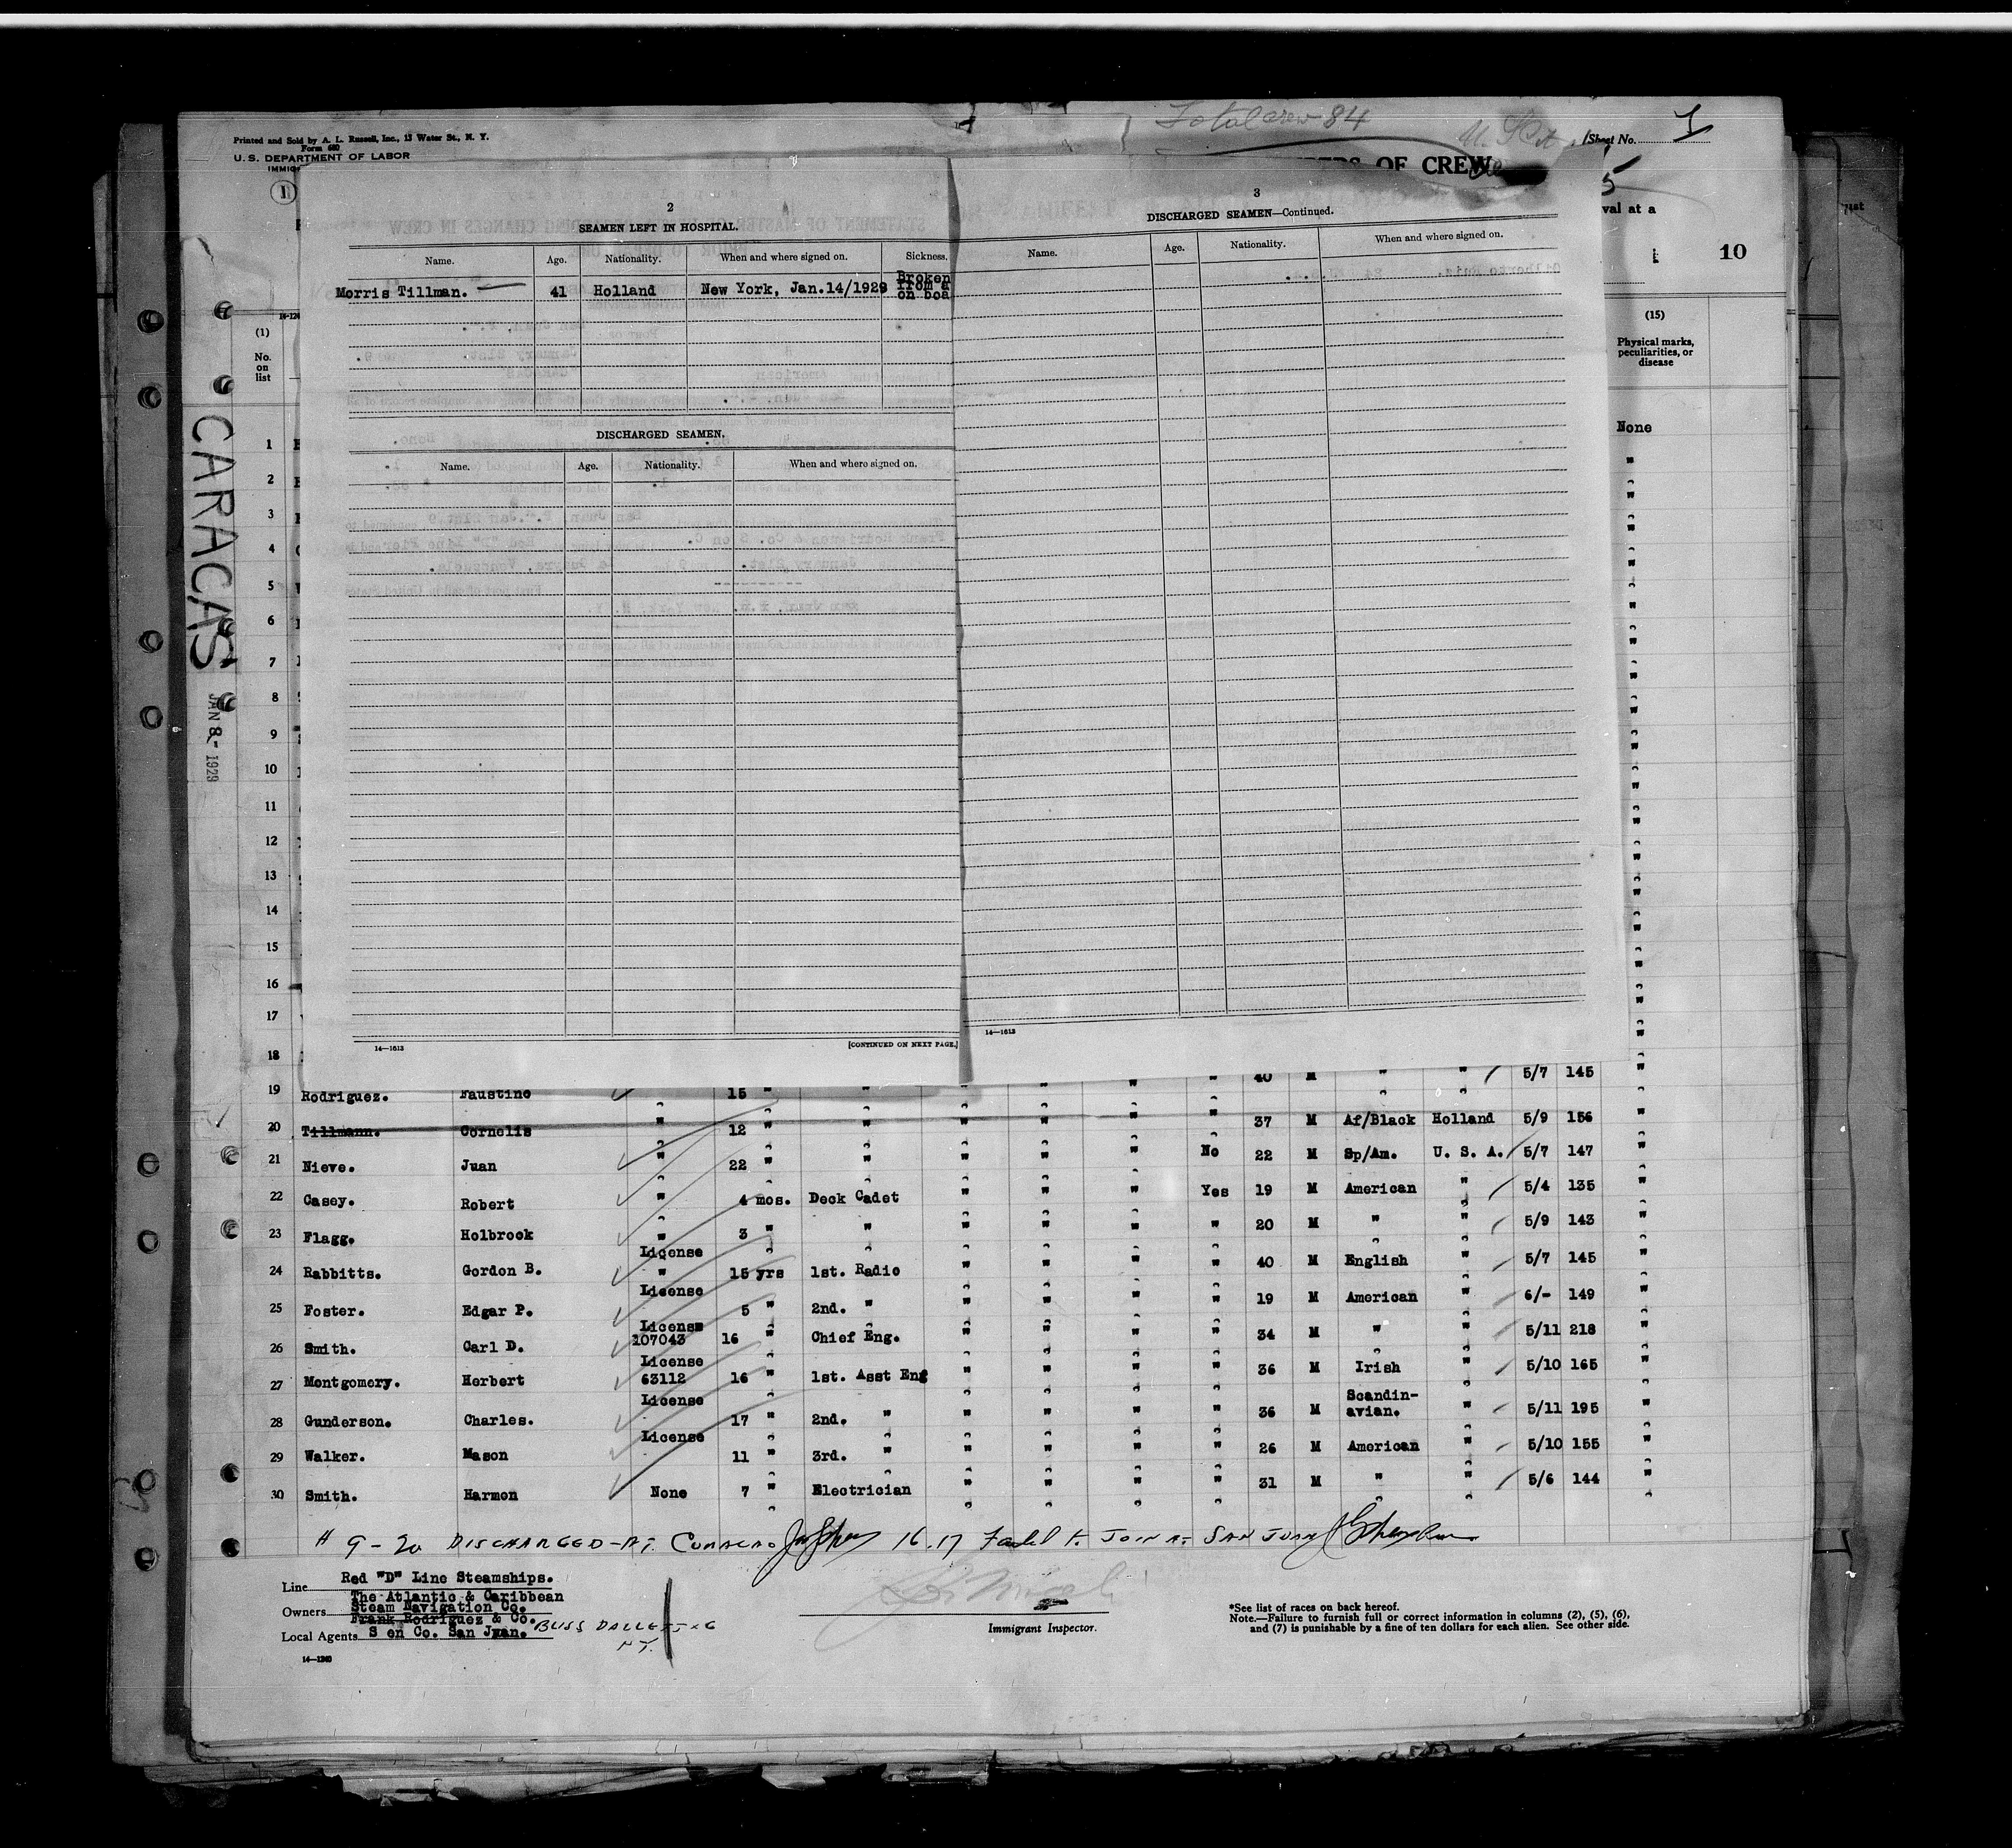 Total crew 84
Printed and Sold by A. L. Russell, Inc., 13 Water St., N. Y.
Form 680
U. S. DEPARTMENT OF LABOR
Sheet No. 1
OF CREW
1
5
val at a
10
2
SEAMEN LEFT IN HOSPITAL.
Name. Age. Nationality. When and where signed on. Sickness.
Morris Tillman. 41 Holland New York, Jan.14/1929 Broken
from a
on boa
DISCHARGED SEAMEN.
Name. Age. Nationality. When and where signed on.
14—1613 [CONTINUED ON NEXT PAGE.]
3
DISCHARGED SEAMEN—Continued.
Name. Age. Nationality. When and where signed on.
14—1613
CARACAS
JAN 8 - 1929
(1)
No.
on
list
(15)
Physical marks,
peculiarities, or
disease
None
1
2
3
4
5
6
7
8
9
10
11
12
13
14
15
16
17
18 40 M " " 5/7 145 "
19 Rodriguez. Faustino " 15 " " " " " "
20 Tillmann. Cornelis " 12 " " " " " " 37 M Af/Black Holland 5/9 156 "
21 Nieve. Juan " 22 " " " " " No 22 M Sp/Am. U. S. A. 5/7 147 "
22 Casey. Robert " 4 mos. Deck Cadet " " " Yes 19 M American " 5/4 135 "
23 Flagg. Holbrook " 3 " " " " " " 20 M " " 5/9 143 "
24 Rabbitts. Gordon B. License " 15 yrs 1st. Radio " " " " 40 M English " 5/7 145 "
25 Foster. Edgar P. License 5 " 2nd. " " " " " 19 M American " 6/- 149 "
26 Smith. Carl D. License 107043 16 " Chief Eng. " " " " 34 M " " 5/11 218 "
27 Montgomery. Herbert License 63112 16 " 1st. Asst Eng " " " " 36 M Irish " 5/10 165 "
28 Gunderson. Charles. License 17 " 2nd. " " " " " 36 M Scandin-avian. " 5/11 195 "
29 Walker. Mason License 11 " 3rd. " " " " " 26 M American " 5/10 155 "
30 Smith. Harmon None 7 " Electrician " " " " 31 M " " 5/6 144 "
# 9 - 20 DISCHARGED - AT. CURACAO 16.17 Failed to JOIN AT SAN JUAN
Line Red "D" Line Steamships.
The Atlantic & Caribbean
Owners Steam Navigation Co.
Frank Rodriguez & Co.
Local Agents S en Co. San Juan. BLISS DALLETT & C
N.Y.
14—1240
Immigrant Inspector.
*See list of races on back hereof.
Note.—Failure to furnish full or correct information in columns (2), (5), (6),
and (7) is punishable by a fine of ten dollars for each alien. See other side.